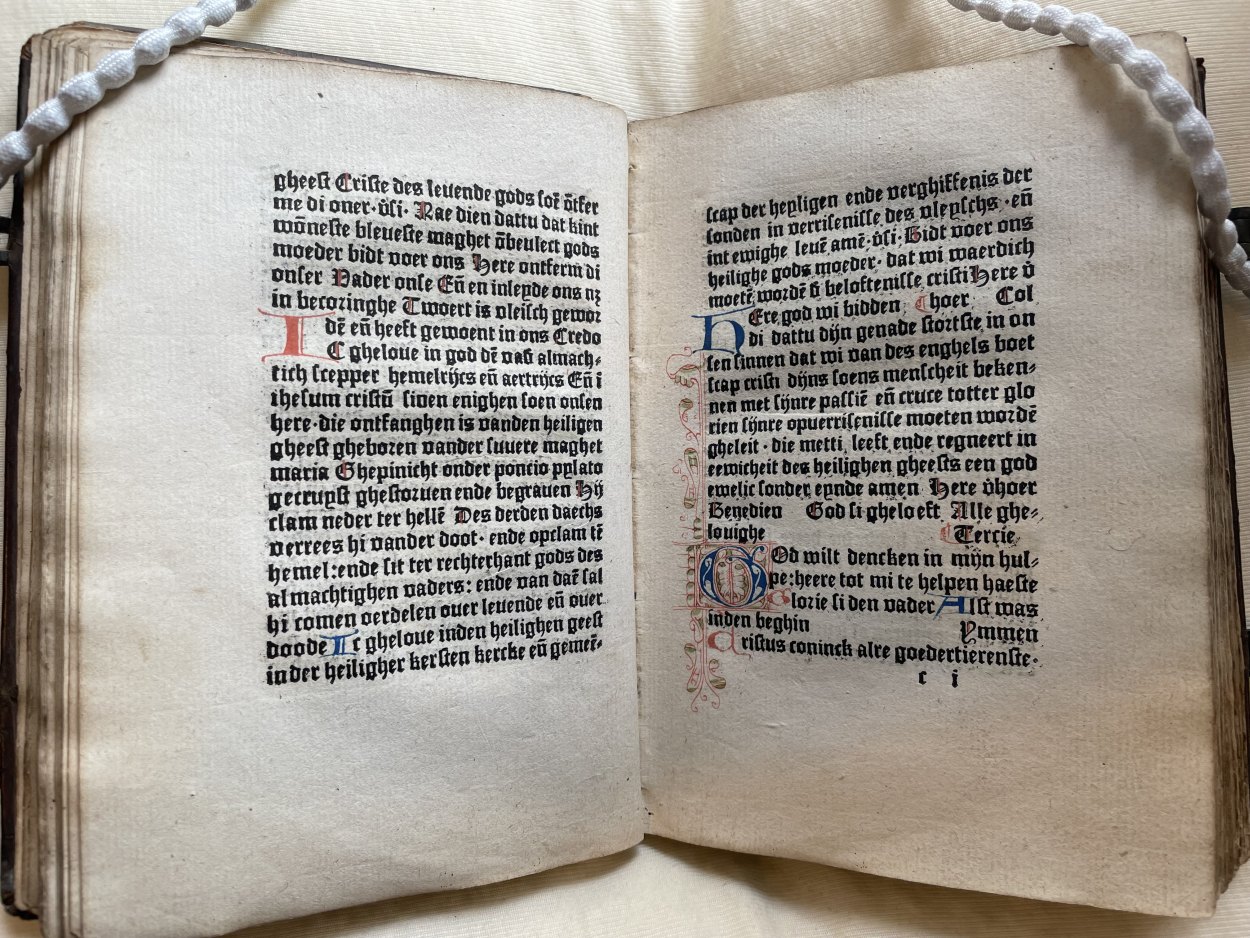 gheest Criste des leuende gods soē ōtfer
me di oner·v̄si· Nae dien dattu dat kint
wōneste bleueste maghet ōbeulect gods
moeder bidt voer ons Here ontferm di
onser Vader onse Eñ en inleyde ons nz
in becoringhe Twoert is vleisch gewor
dē eñ heeft gewoent in ons Credo
IC gheloue in god dē vad almach-
tich scepper hemelrijcs eñ aertrijcs Eñ i
ihesum cristū sinen enighen soen onsen
here·die ontfanghen is vanden heiligen
gheest gheboren vander suuere maghet
maria Ghepinicht onder poncio pylato
gecruyst ghestoruen ende begrauen Hij
clam neder ter hellē Des derden daechs
verrees hi vander doot· ende opclam tē
hemel:ende sit ter rechterhant gods des
almachtighen vaders: ende van daē sal
hi comen oerdelen ouer leuende eñ ouer
doode Ic gheloue inden heilighen geest
inder heiligher kersten kercke eñ gemeē-
scap der heyligen ende verghiffenis der
sonden in verrisenisse des vleyschs·eñ
int ewighe leuē amē·v̄si·Bidt voer ons
heilighe gods moeder· dat wi waerdich
moetē wordē d beloftenisse cristi Here v̄
HEre god wi bidden choer Col
di dattu dijn genade stortste in on
sen sinnen dat wi van des enghels boet
scap cristi dijns soens menscheit beken-
nen met sijnre passiē eñ cruce totter glo
rien sijnre opuerrisenisse moeten wordē
gheleit· die metti leeft ende regneert in
eewicheit des heilighen gheests een god
ewelic sonder eynde amen Here v̄hoer
Benedien God si gheloeft Alle ghe-
louighe Tercie
GOd wilt dencken in mijn hul-
pe:heere tot mi te helpen haeste
Glorie si den vader Alst was
inden beghin Ymmen
cristus coninck alre goedertierenste·
c i